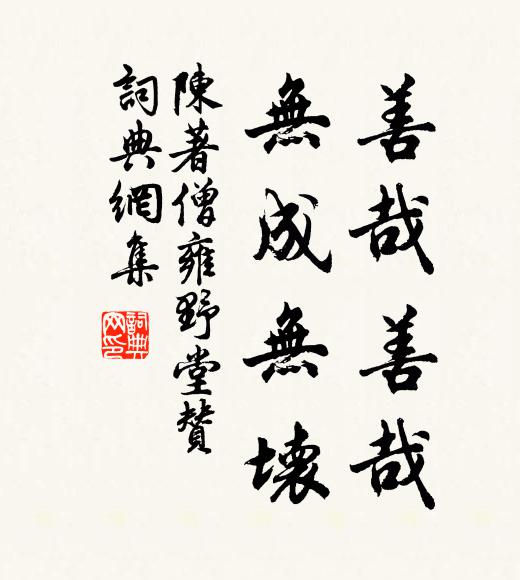 善哉善哉
無成無壞
陳著僧雍野堂贊
詞典網集
詞典網印